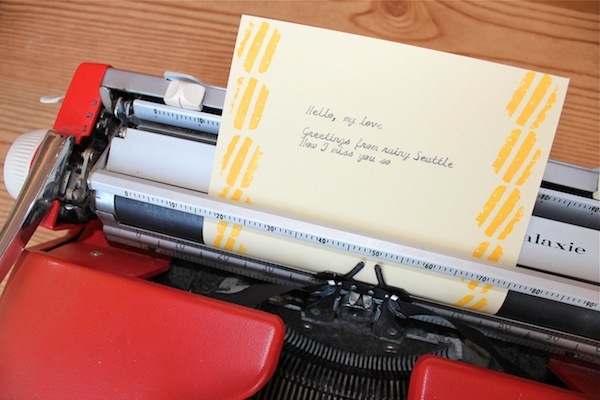 Hello, my love
Greetings from rainy Seattle
How I miss you so
alaxie
0 10 20 30 40 50 60 70 80 90